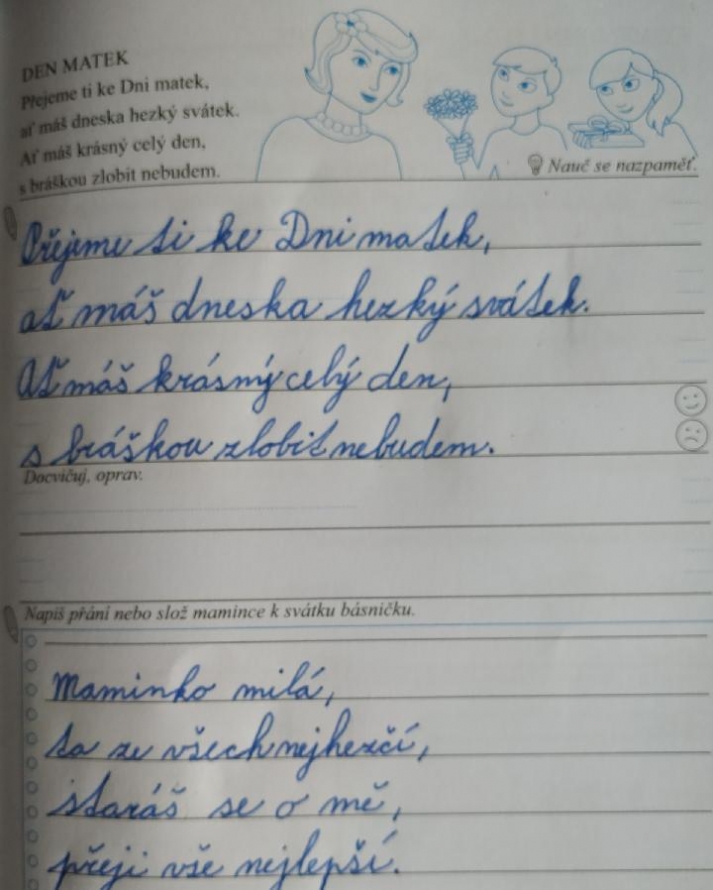 DEN MATEK
Přejeme ti ke Dni matek,
ať máš dneska hezký svátek.
Ať máš krásný celý den,
s bráškou zlobit nebudem.
Nauč se nazpaměť.
Přejeme ti ke Dni matek,
ať máš dneska hezký svátek.
Ať máš krásný celý den,
s bráškou zlobit nebudem.
Docvičuj, oprav.
Napiš přání nebo slož mamince k svátku básničku.
Maminko milá,
ta ze všech nejhezčí,
staráš se o mě,
přeji vše nejlepší.